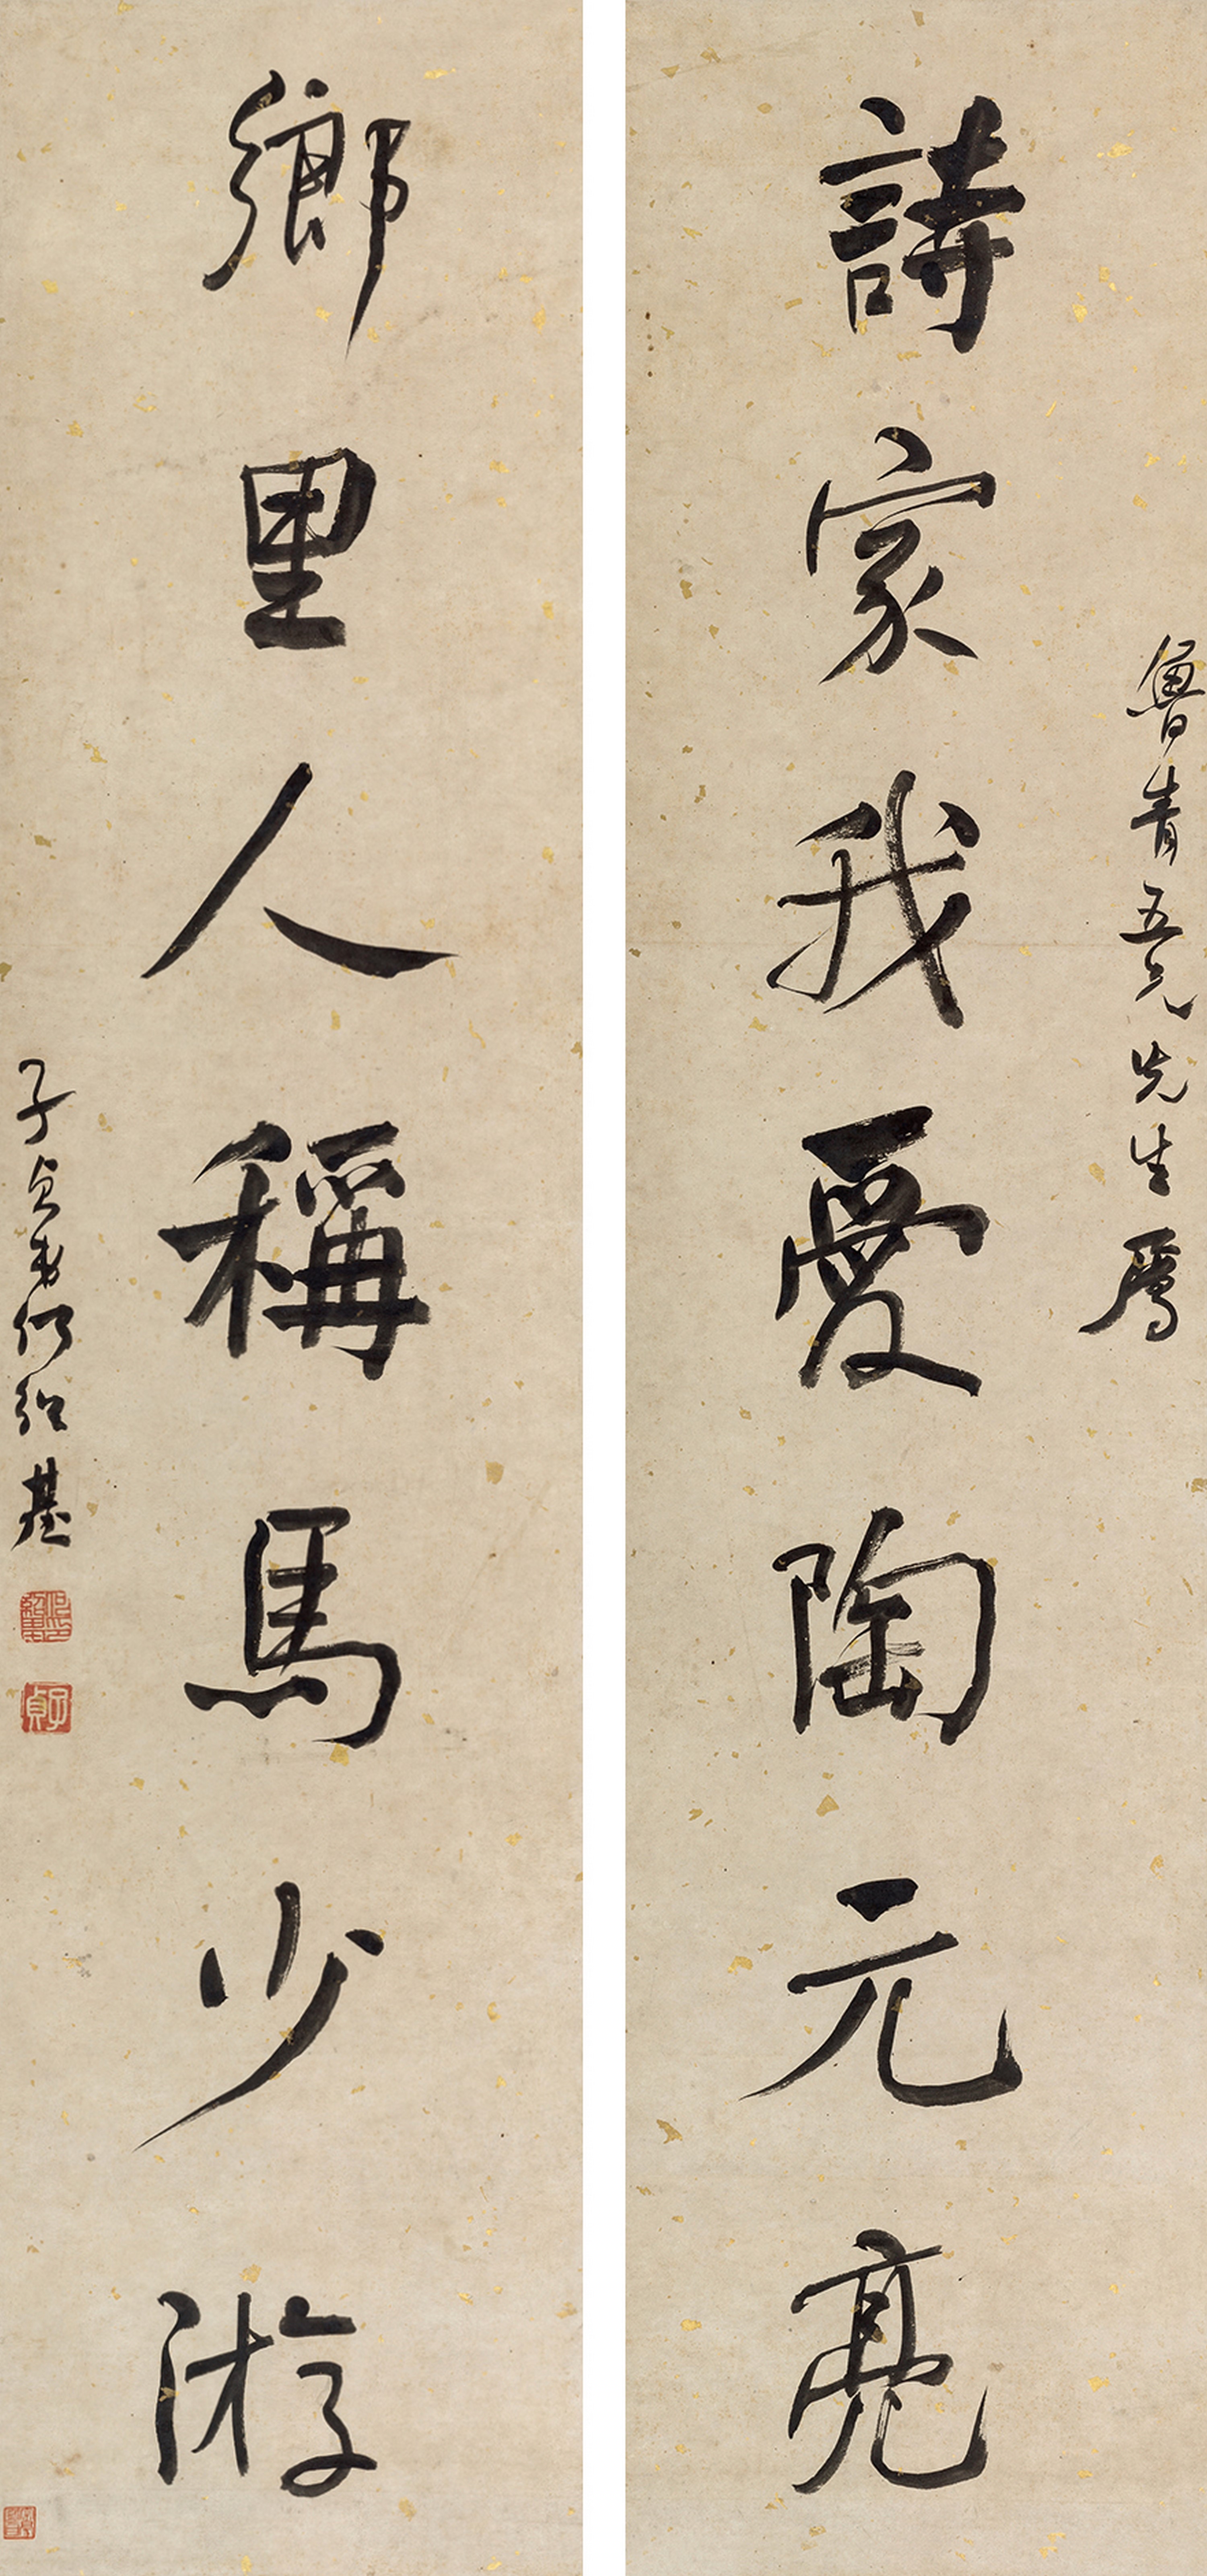 魯青五兄先生屬
詩家我愛陶元亮
鄉里人稱馬少游
子貞弟何紹基
子貞